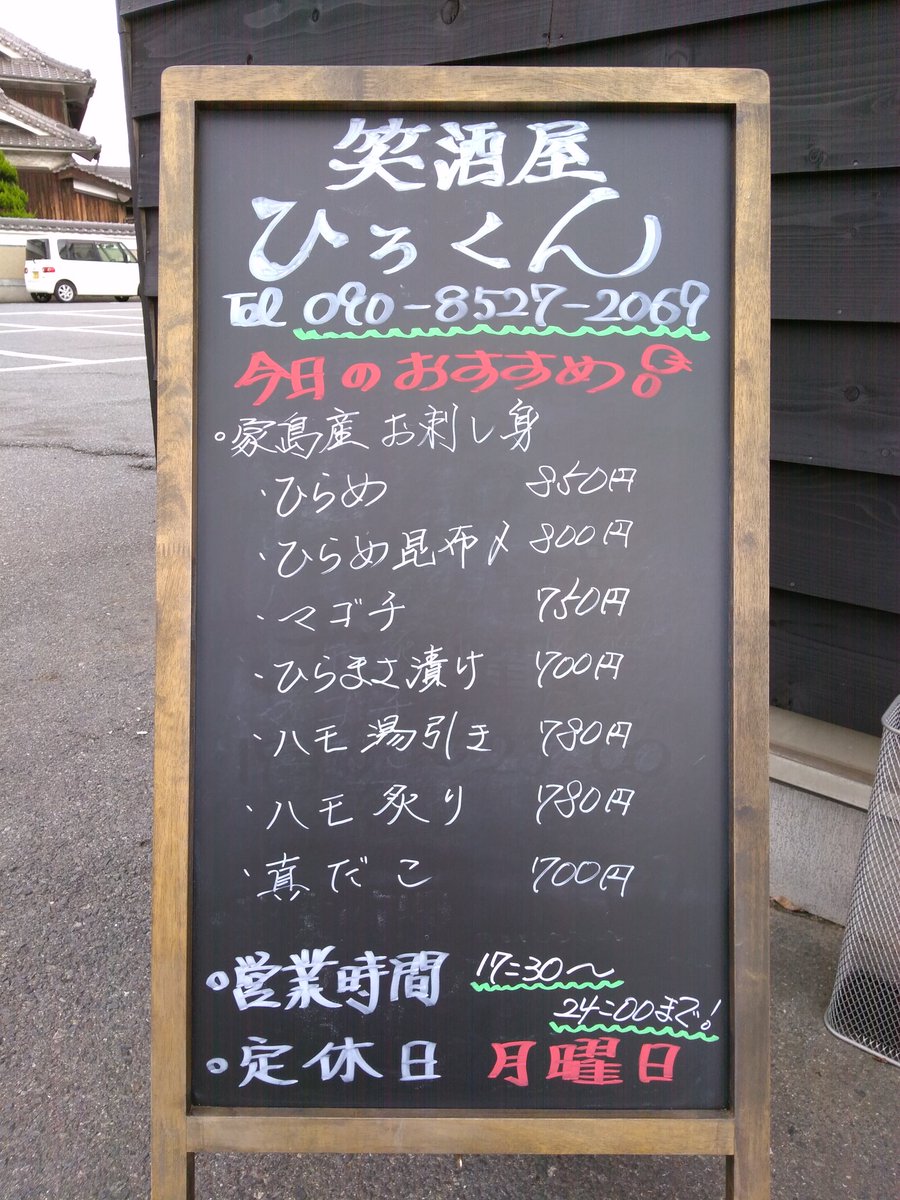 笑酒屋
ひろくん
Tel 090-8527-2069
今日のおすすめ!
家島産 お刺し身
・ひらめ 850円
・ひらめ昆布〆 800円
・マゴチ 750円
・ひらまさ漬け 700円
・ハモ湯引き 780円
・ハモ炙り 780円
・真だこ 700円
営業時間 17:30〜
24:00まで!
定休日 月曜日